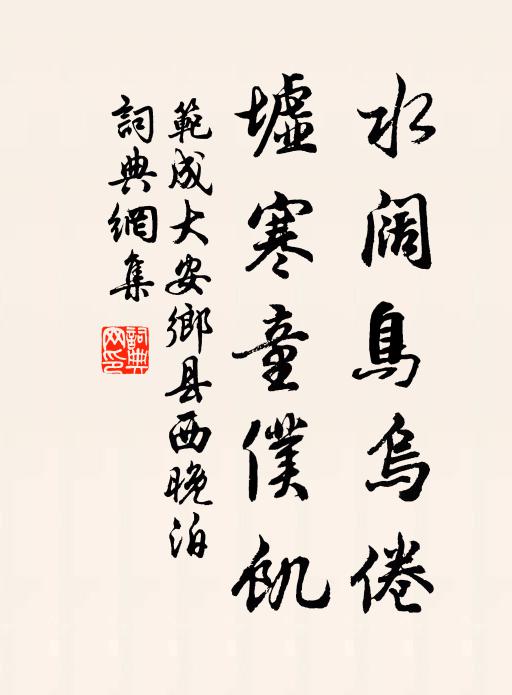 水阔鳧烏倦
墟寒童僕飢
範成大安鄉县西晚泊
詞典網集
詞典
网印